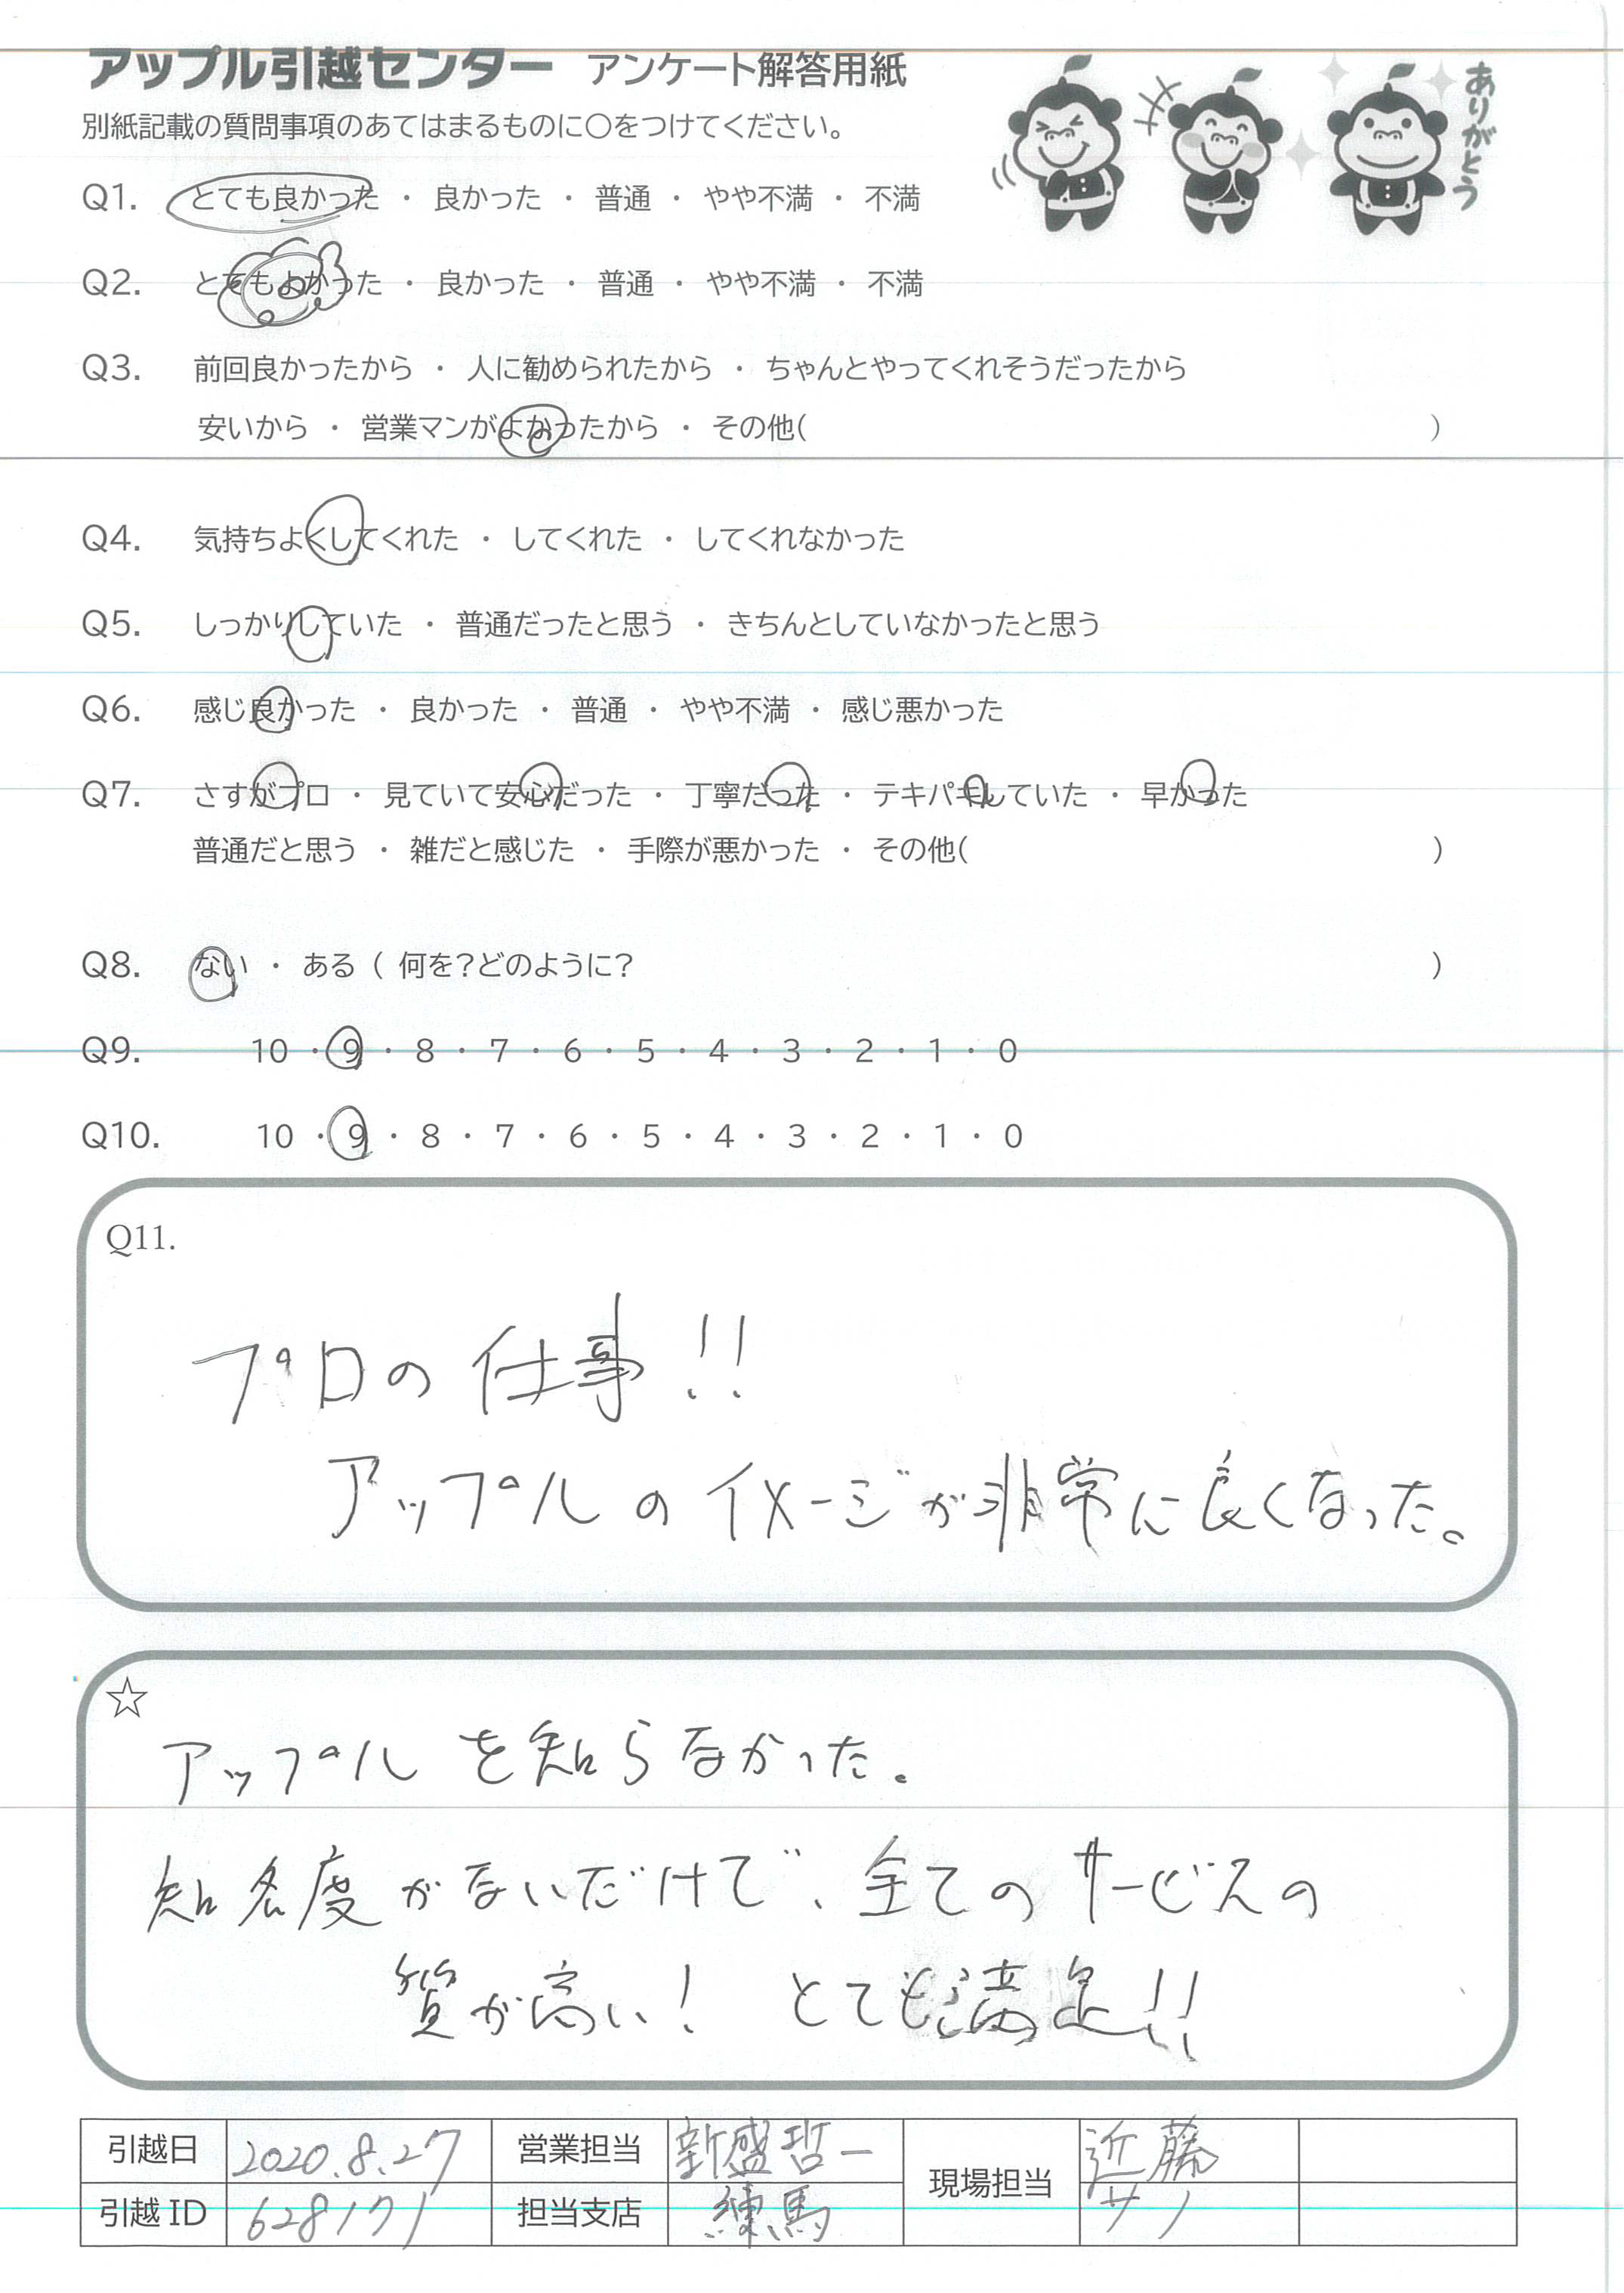 アップル引越センター アンケート解答用紙
ありがとう
別紙記載の質問事項のあてはまるものに〇をつけてください。
Q1. とても良かった ・ 良かった ・ 普通 ・ やや不満 ・ 不満
Q2. とてもよかった ・ 良かった ・ 普通 ・ やや不満 ・ 不満
Q3. 前回良かったから ・ 人に勧められたから ・ ちゃんとやってくれそうだったから
安いから ・ 営業マンがよかったから ・ その他( )
Q4. 気持ちよくしてくれた ・ してくれた ・ してくれなかった
Q5. しっかりしていた ・ 普通だったと思う ・ きちんとしていなかったと思う
Q6. 感じ良かった ・ 良かった ・ 普通 ・ やや不満 ・ 感じ悪かった
Q7. さすがプロ ・ 見ていて安心だった ・ 丁寧だった ・ テキパキしていた ・ 早かった
普通だと思う ・ 雑だと感じた ・ 手際が悪かった ・ その他( )
Q8. ない ・ ある ( 何を?どのように? )
Q9. 10 ・ 9 ・ 8 ・ 7 ・ 6 ・ 5 ・ 4 ・ 3 ・ 2 ・ 1 ・ 0
Q10. 10 ・ 9 ・ 8 ・ 7 ・ 6 ・ 5 ・ 4 ・ 3 ・ 2 ・ 1 ・ 0
Q11.
プロの仕事!!
アップルのイメージが非常に良くなった。
☆
アップルを知らなかった。
知名度がないだけで、全てのサービスの
質が高い! とても満足!!
引越日 2020.8.27 営業担当 新盛哲一 現場担当 近藤
引越ID 628171 担当支店 練馬 サノ